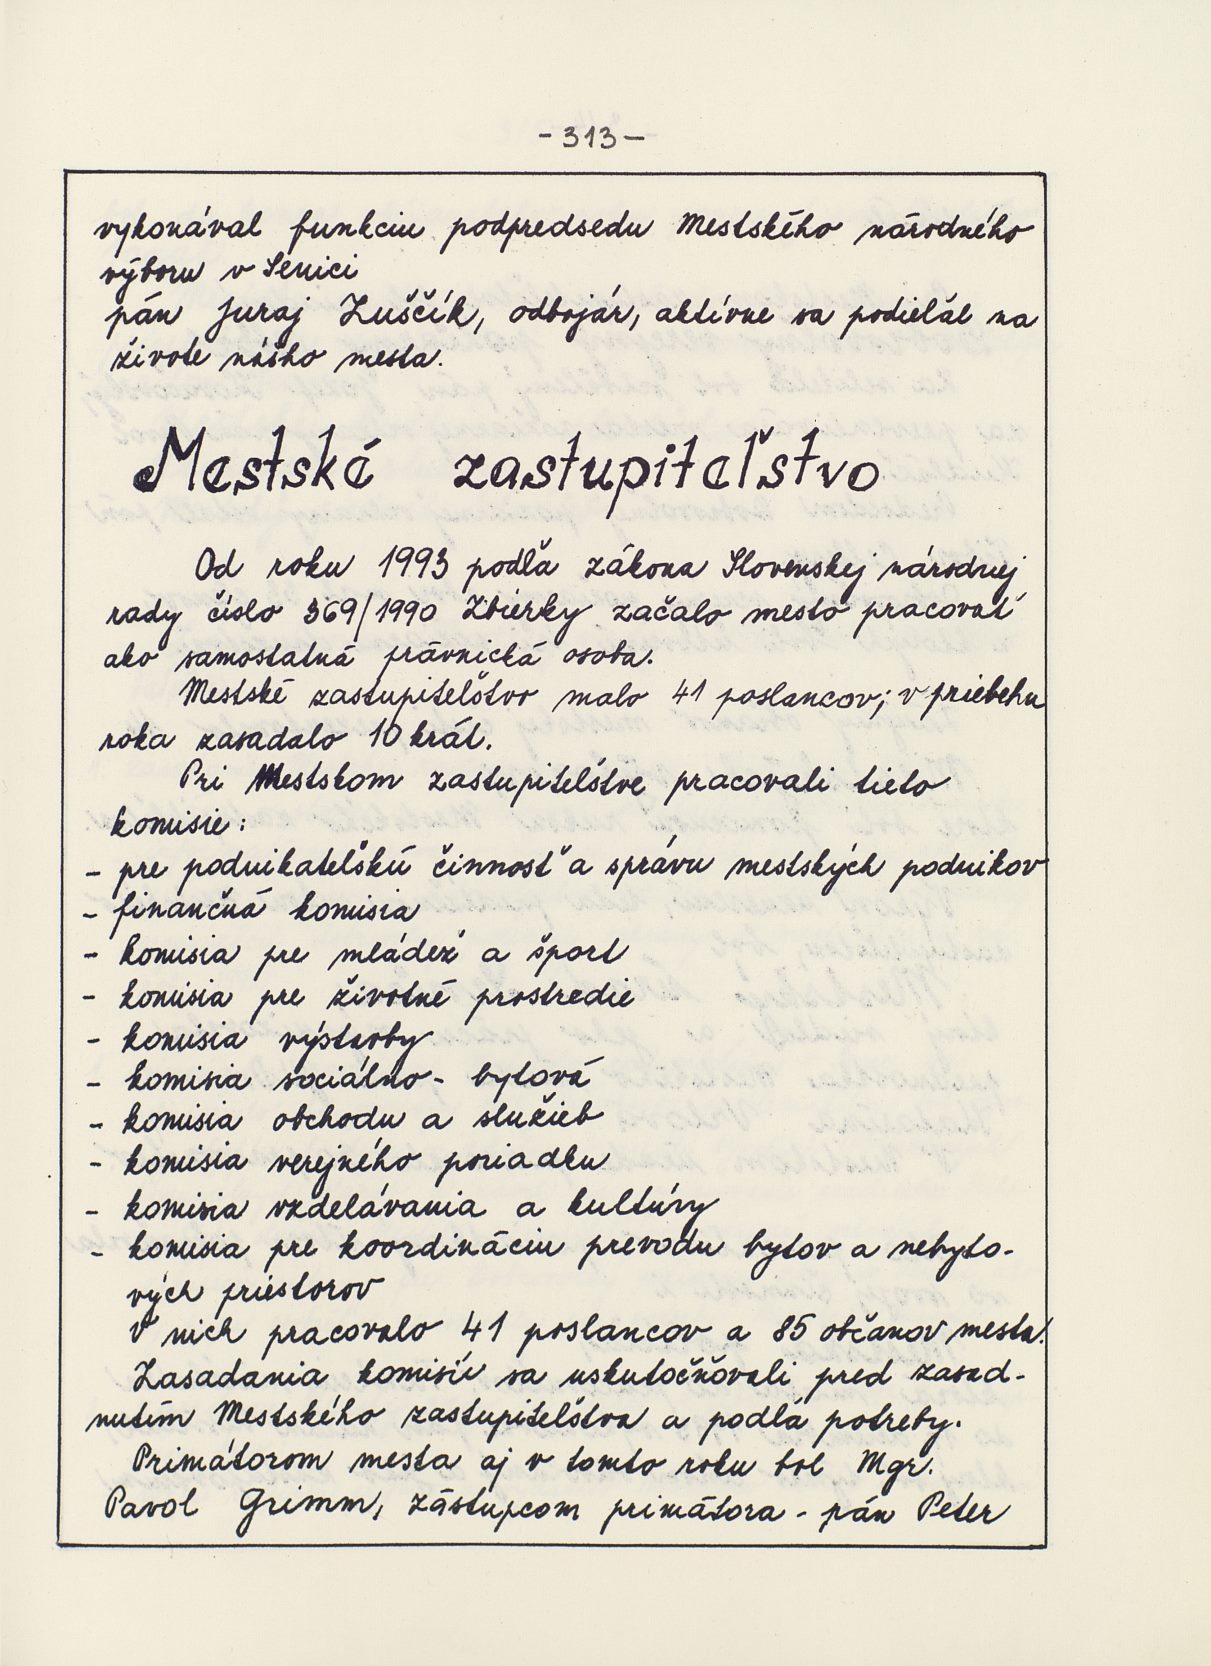 - 313 -
vykonával funkciu podpredsedu Mestského národného
výboru v Senici
pán Juraj Luščík, odbojár, aktívne sa podieľal na
živote nášho mesta.
Mestské zastupiteľstvo
Od roku 1993 podľa zákona Slovenskej národnej
rady číslo 369/1990 Zbierky začalo mesto pracovať
ako samostatná právnická osoba.
Mestské zastupiteľstvo malo 41 poslancov; v priebehu
roka zasadalo 10 krát.
Pri Mestskom zastupiteľstve pracovali tieto
komisie:
- pre podnikateľskú činnosť a správu mestských podnikov
- finančná komisia
- komisia pre mládež a šport
- komisia pre životné prostredie
- komisia výstavby
- komisia sociálno - bytová
- komisia obchodu a služieb
- komisia verejného poriadku
- komisia vzdelávania a kultúry
- komisia pre koordináciu prevodu bytov a nebyto-
vých priestorov
V nich pracovalo 41 poslancov a 85 občanov mesta.
Zasadania komisií sa uskutočňovali pred zasad-
nutím Mestského zastupiteľstva a podľa potreby.
Primátorom mesta aj v tomto roku bol Mgr.
Pavol Grimm, zástupcom primátora - pán Peter